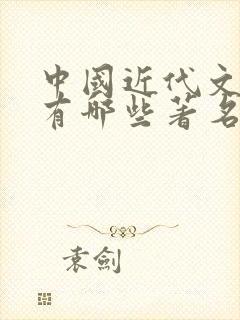 中國近代文
有哪些著名
袁劍